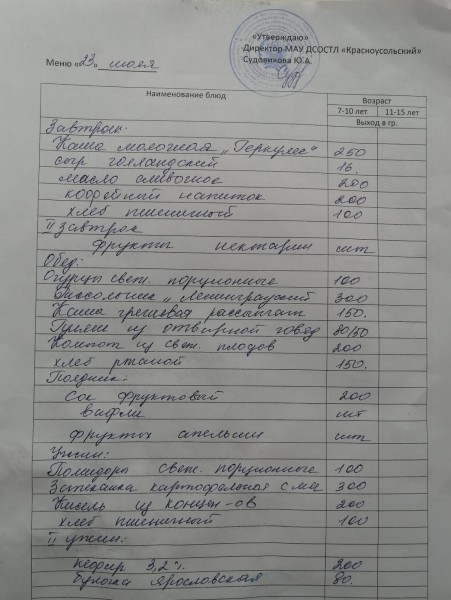 «Утверждаю»
Директор МАУ ДСОСТЛ «Красноусольский»
Судовикова Ю.А.
Меню «23» июля
Наименование блюд Возраст
7-10 лет 11-15 лет
Выход в гр.
Завтрак:
Каша молочная „Геркулес" 250
сыр голландский 16.
масло сливочное 200
кофейный напиток 200
хлеб пшеничный 100
II завтрак
фрукты нектарин шт
Обед:
Огурцы свеж. порционные 100
Рассольник „Ленинградский 300
Каша гречневая рассыпчат 150.
Гуляш из отварной говяд 80/50
Компот из свеж. плодов 200
хлеб ржаной 150.
Полдник:
Сок фруктовый 200
вафли шт
фрукты апельсин шт
Ужин:
Помидоры свеж. порционные 100
Запеканка картофельная с мя 300
Кисель из концен-ов 200
хлеб пшеничный 100
II ужин:
кефир 3,2%. 200
булочка Ярославская 80.